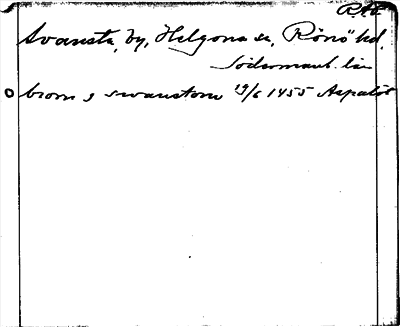 RAÄ
Svansta, by, Helgona sn, Rönö hd,
Södermanl. län
brom j swanstom 19/6 1455 Aspalöt